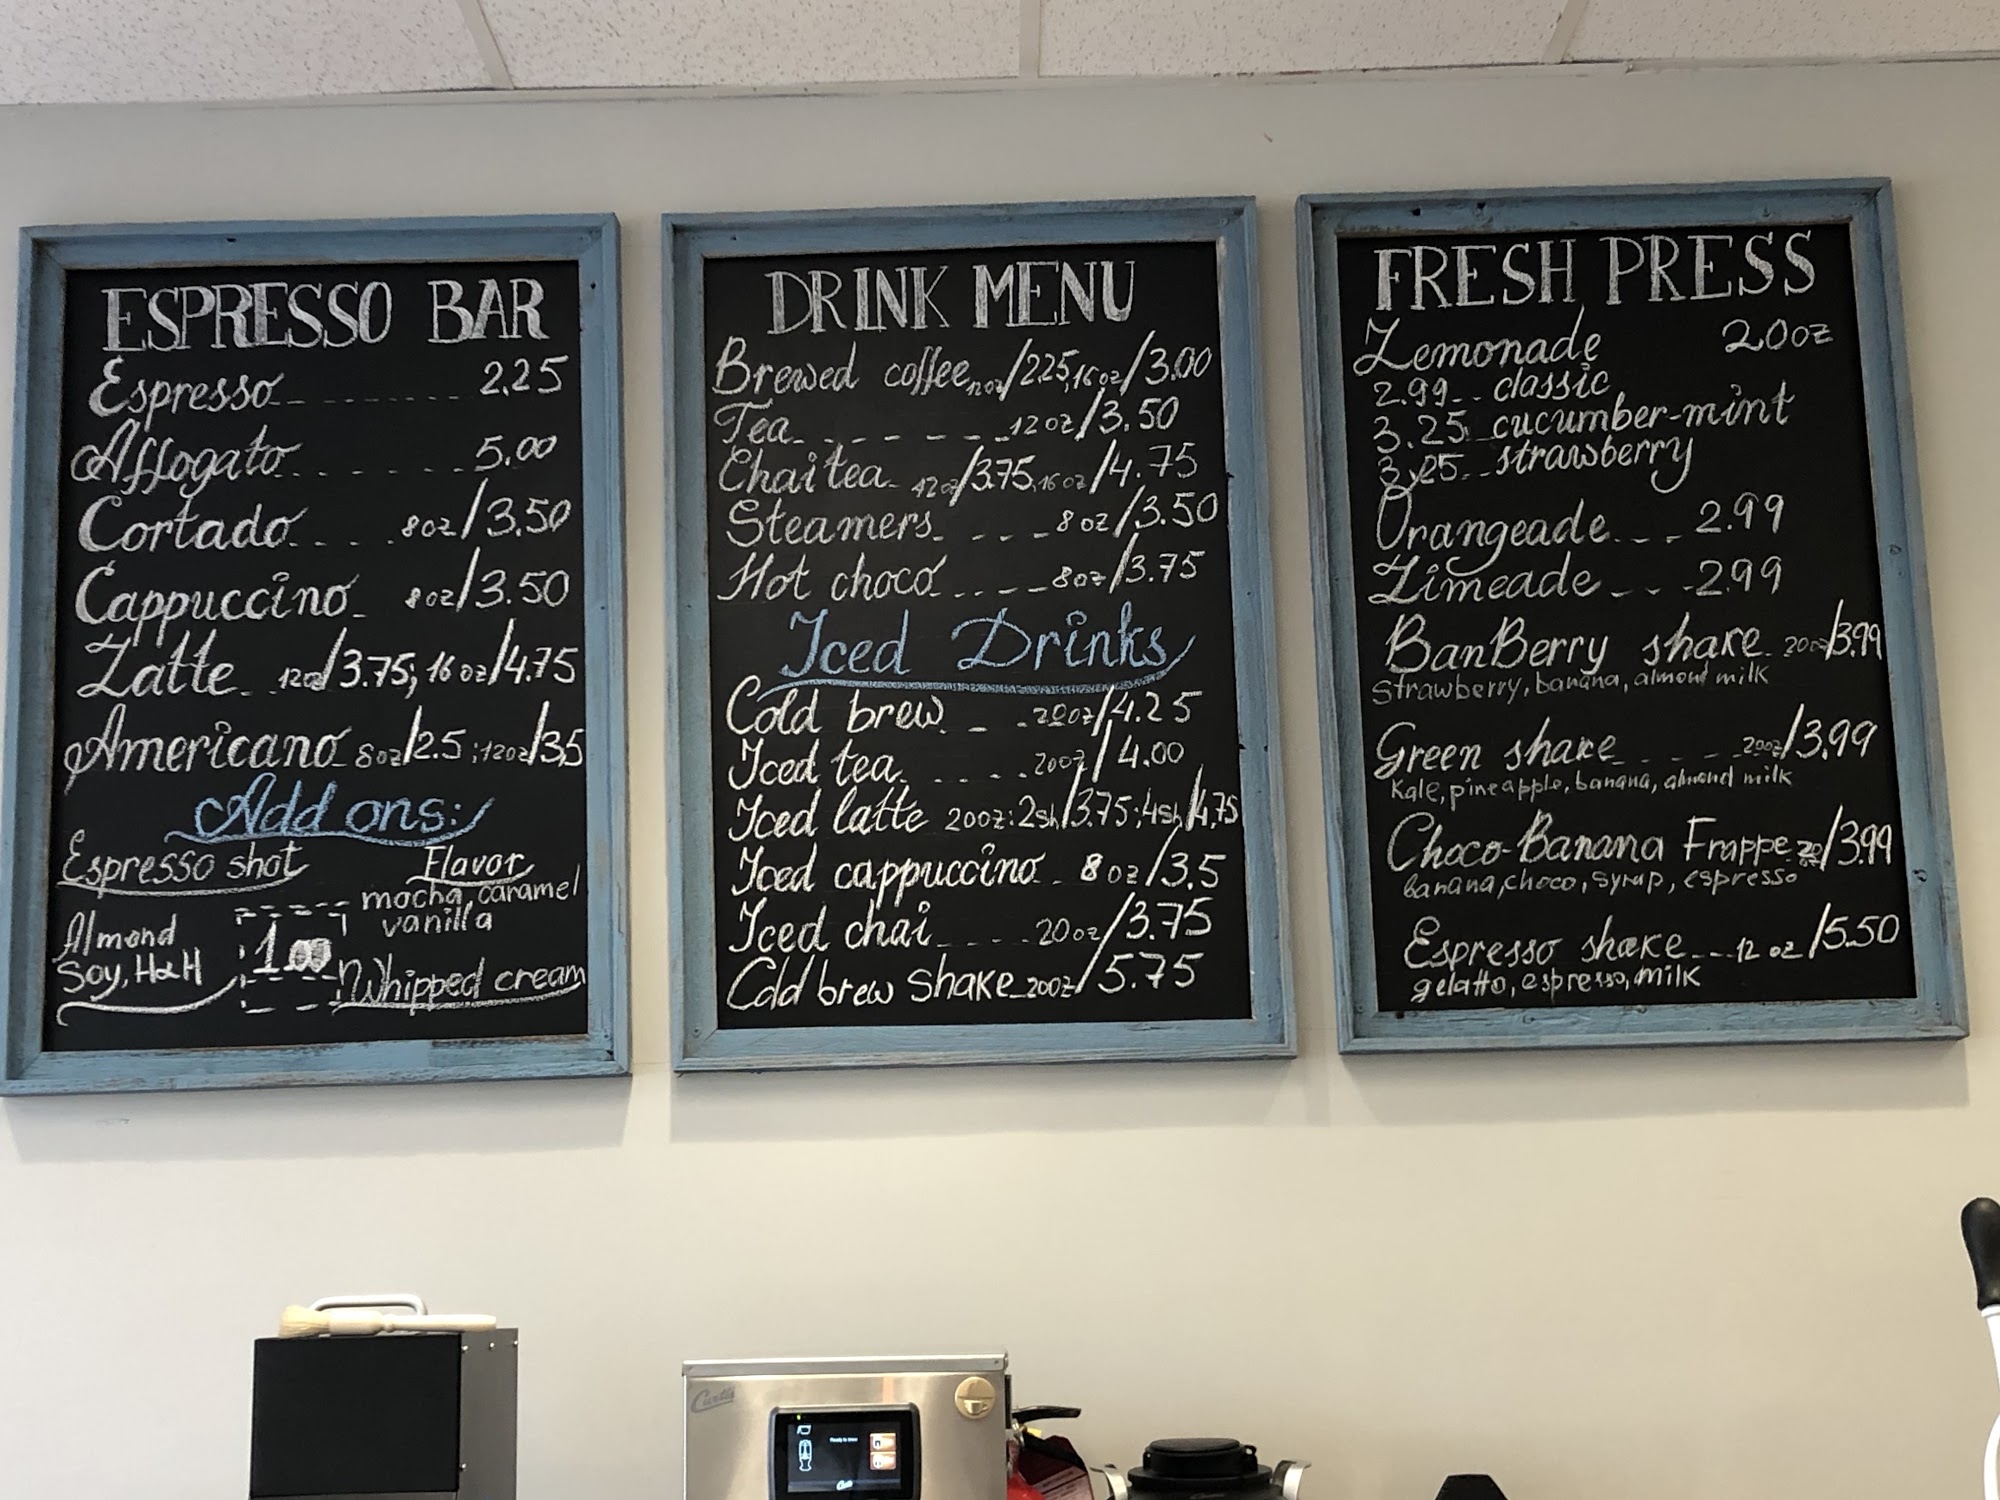 ESPRESSO BAR
Espresso 2.25
Affogato 5.00
Cortado 8oz/3.50
Cappuccino 8oz/3.50
Latte 12oz/3.75; 16oz/4.75
Americano 8oz/2.5; 12oz/3,5
Add ons:
Espresso shot
Flavor
mocha, caramel
vanilla
Almond
Soy, H&H
1.00
Whipped cream
DRINK MENU
Brewed coffee 12oz/2.25, 16oz/3.00
Tea 12oz/3.50
Chai tea 12oz/3.75, 16oz/4.75
Steamers 8oz/3.50
Hot choco 8oz/3.75
Iced Drinks
Cold brew 20oz/4.25
Iced tea 20oz/4.00
Iced latte 20oz: 2sh/3.75; 4sh/4,75
Iced cappuccino 8oz/3.5
Iced chai 20oz/3.75
Cold brew shake 20oz/5.75
FRESH PRESS
Lemonade 20oz
2.99 classic
3.25 cucumber-mint
3,25 strawberry
Orangeade 2.99
Limeade 2.99
BanBerry shake 20oz/3.99
strawberry, banana, almond milk
Green shake 20oz/3.99
kale, pineapple, banana, almond milk
Choco-Banana Frappe 20oz/3.99
banana, choco, syrup, espresso
Espresso shake 12 oz/5.50
gelatto, espresso, milk
Curtis
Ready to brew